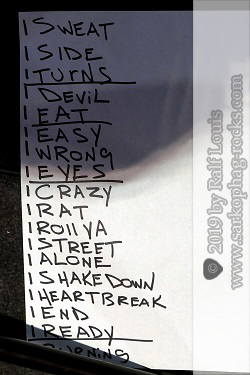 I SWEAT
I SIDE
I TURNS
I DEVIL
I EAT
I EASY
I WRONG
I EYES
I CRAZY
I RAT
I ROllYA
I STREET
I ALONE
I SHAKEDOWN
I HEARTBREAK
I END
I READY
I BURNING
© 2019 by Ralf Louis
www.sarkophag-rocks.com